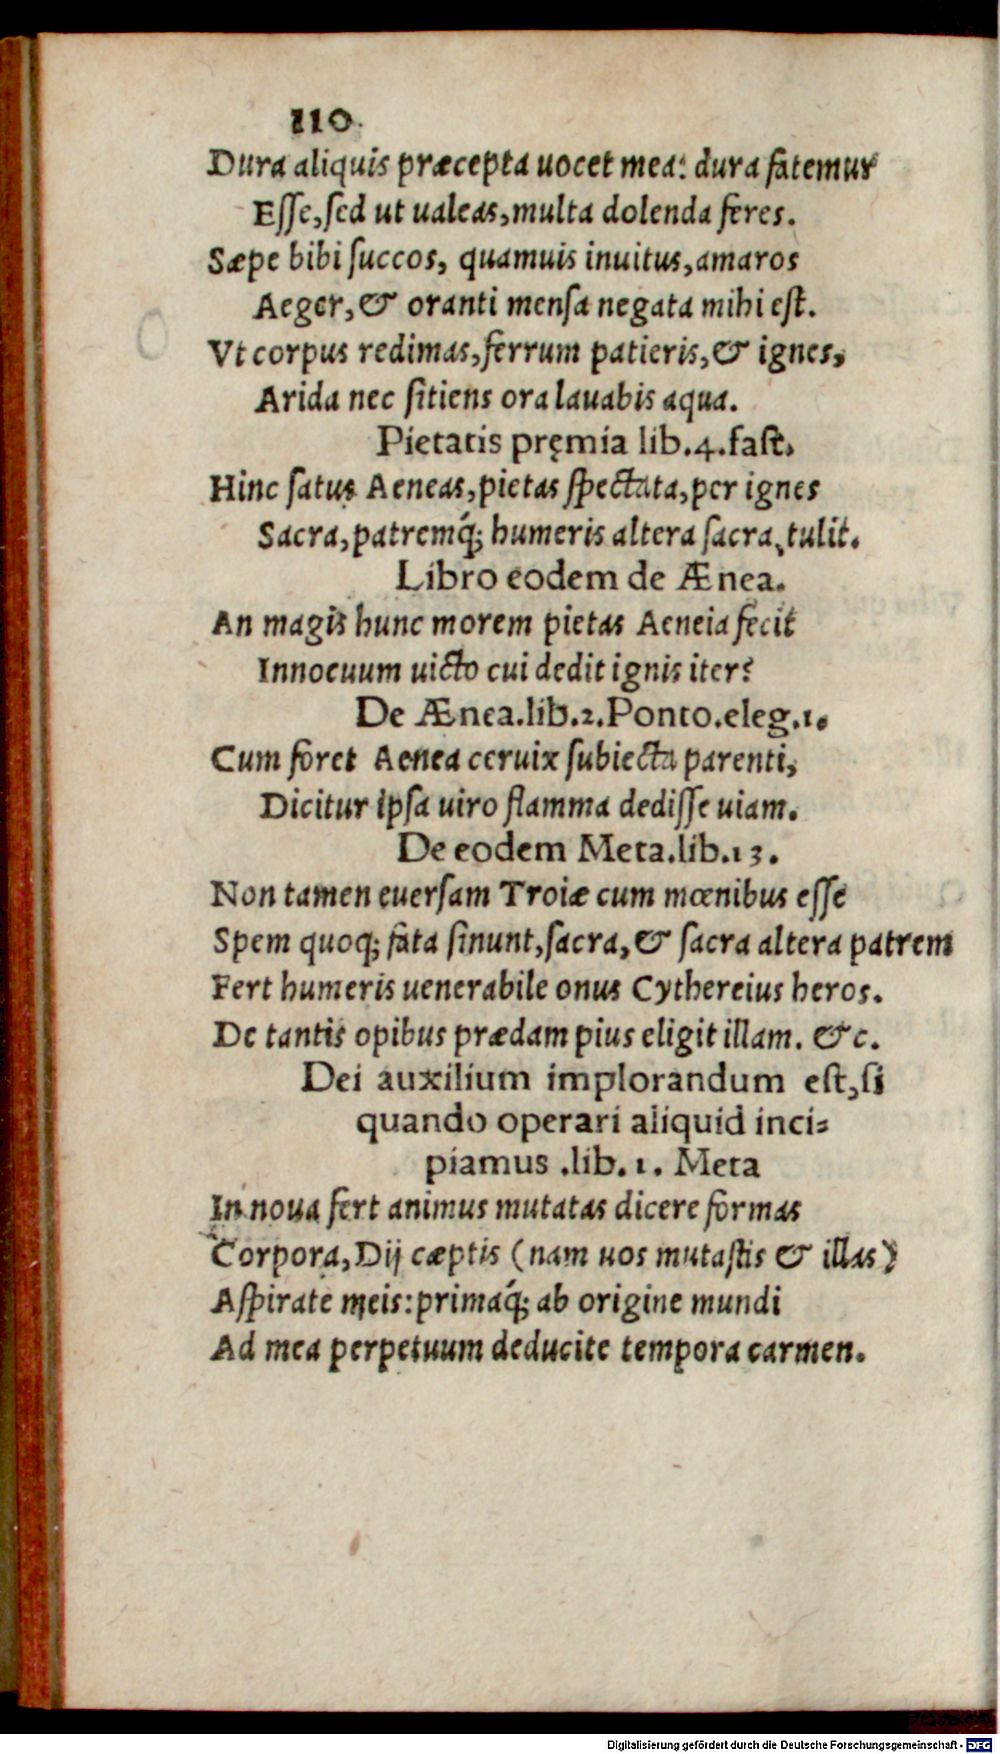 110.
Dura aliquis præcepta uocet mea: dura fatemur
Esse, sed ut ualeas, multa dolenda feres.
Sæpe bibi succos, quamuis inuitus, amaros
Aeger, & oranti mensa negata mihi est.
Vt corpus redimas, ferrum patieris, & ignes,
Arida nec sitiens ora lauabis aqua.
Pietatis pręmia lib. 4. fast.
Hinc satus Aeneas, pietas spectata, per ignes
Sacra, patremq́; humeris altera sacra, tulit.
Libro eodem de Ænea.
An magis hunc morem pietas Aeneia fecit
Innocuum uicto cui dedit ignis iter?
De Ænea. lib. 2. Ponto. eleg. 1.
Cum foret Aenea ceruix subiecta parenti,
Dicitur ipsa uiro flamma dedisse uiam.
De eodem Meta. lib. 13.
Non tamen euersam Troiæ cum mœnibus esse
Spem quoq; fata sinunt, sacra, & sacra altera patrem
Fert humeris uenerabile onus Cythereius heros.
De tantis opibus prædam pius eligit illam. &c.
Dei auxilium implorandum est, si
quando operari aliquid inci=
piamus .lib. 1. Meta
In noua fert animus mutatas dicere formas
Corpora, Dij cæptis (nam uos mutastis & illas)
Aspirate meis: primaq́; ab origine mundi
Ad mea perpetuum deducite tempora carmen.
Digitalisierung gefördert durch die Deutsche Forschungsgemeinschaft - DFG